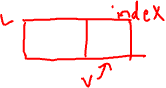 L index
V